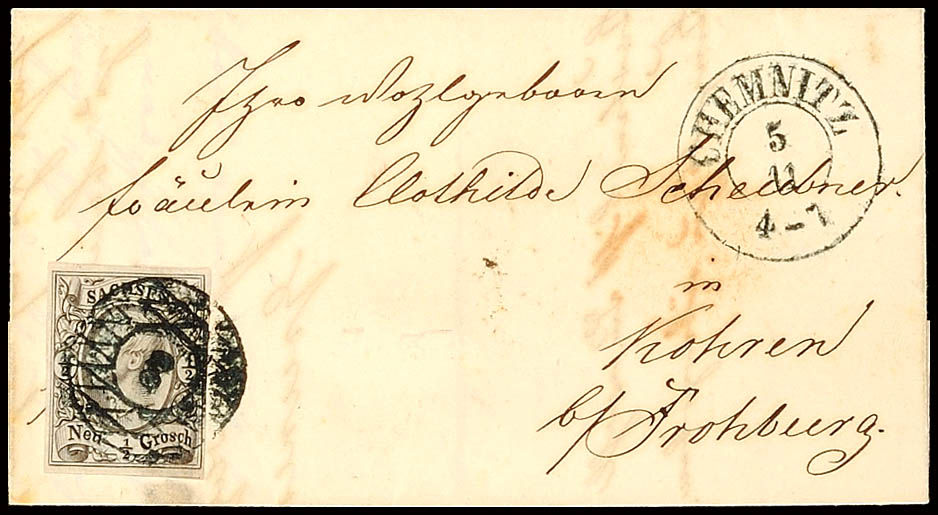 Ihro Wohlgeboren
CHEMNITZ
5
11
4-7
Fräulein Clothilde Scheibner.
in
Kohren
b/ Frohburg.
SACHSEN
1/2 1/2
Neu 1/2 Grosch
8